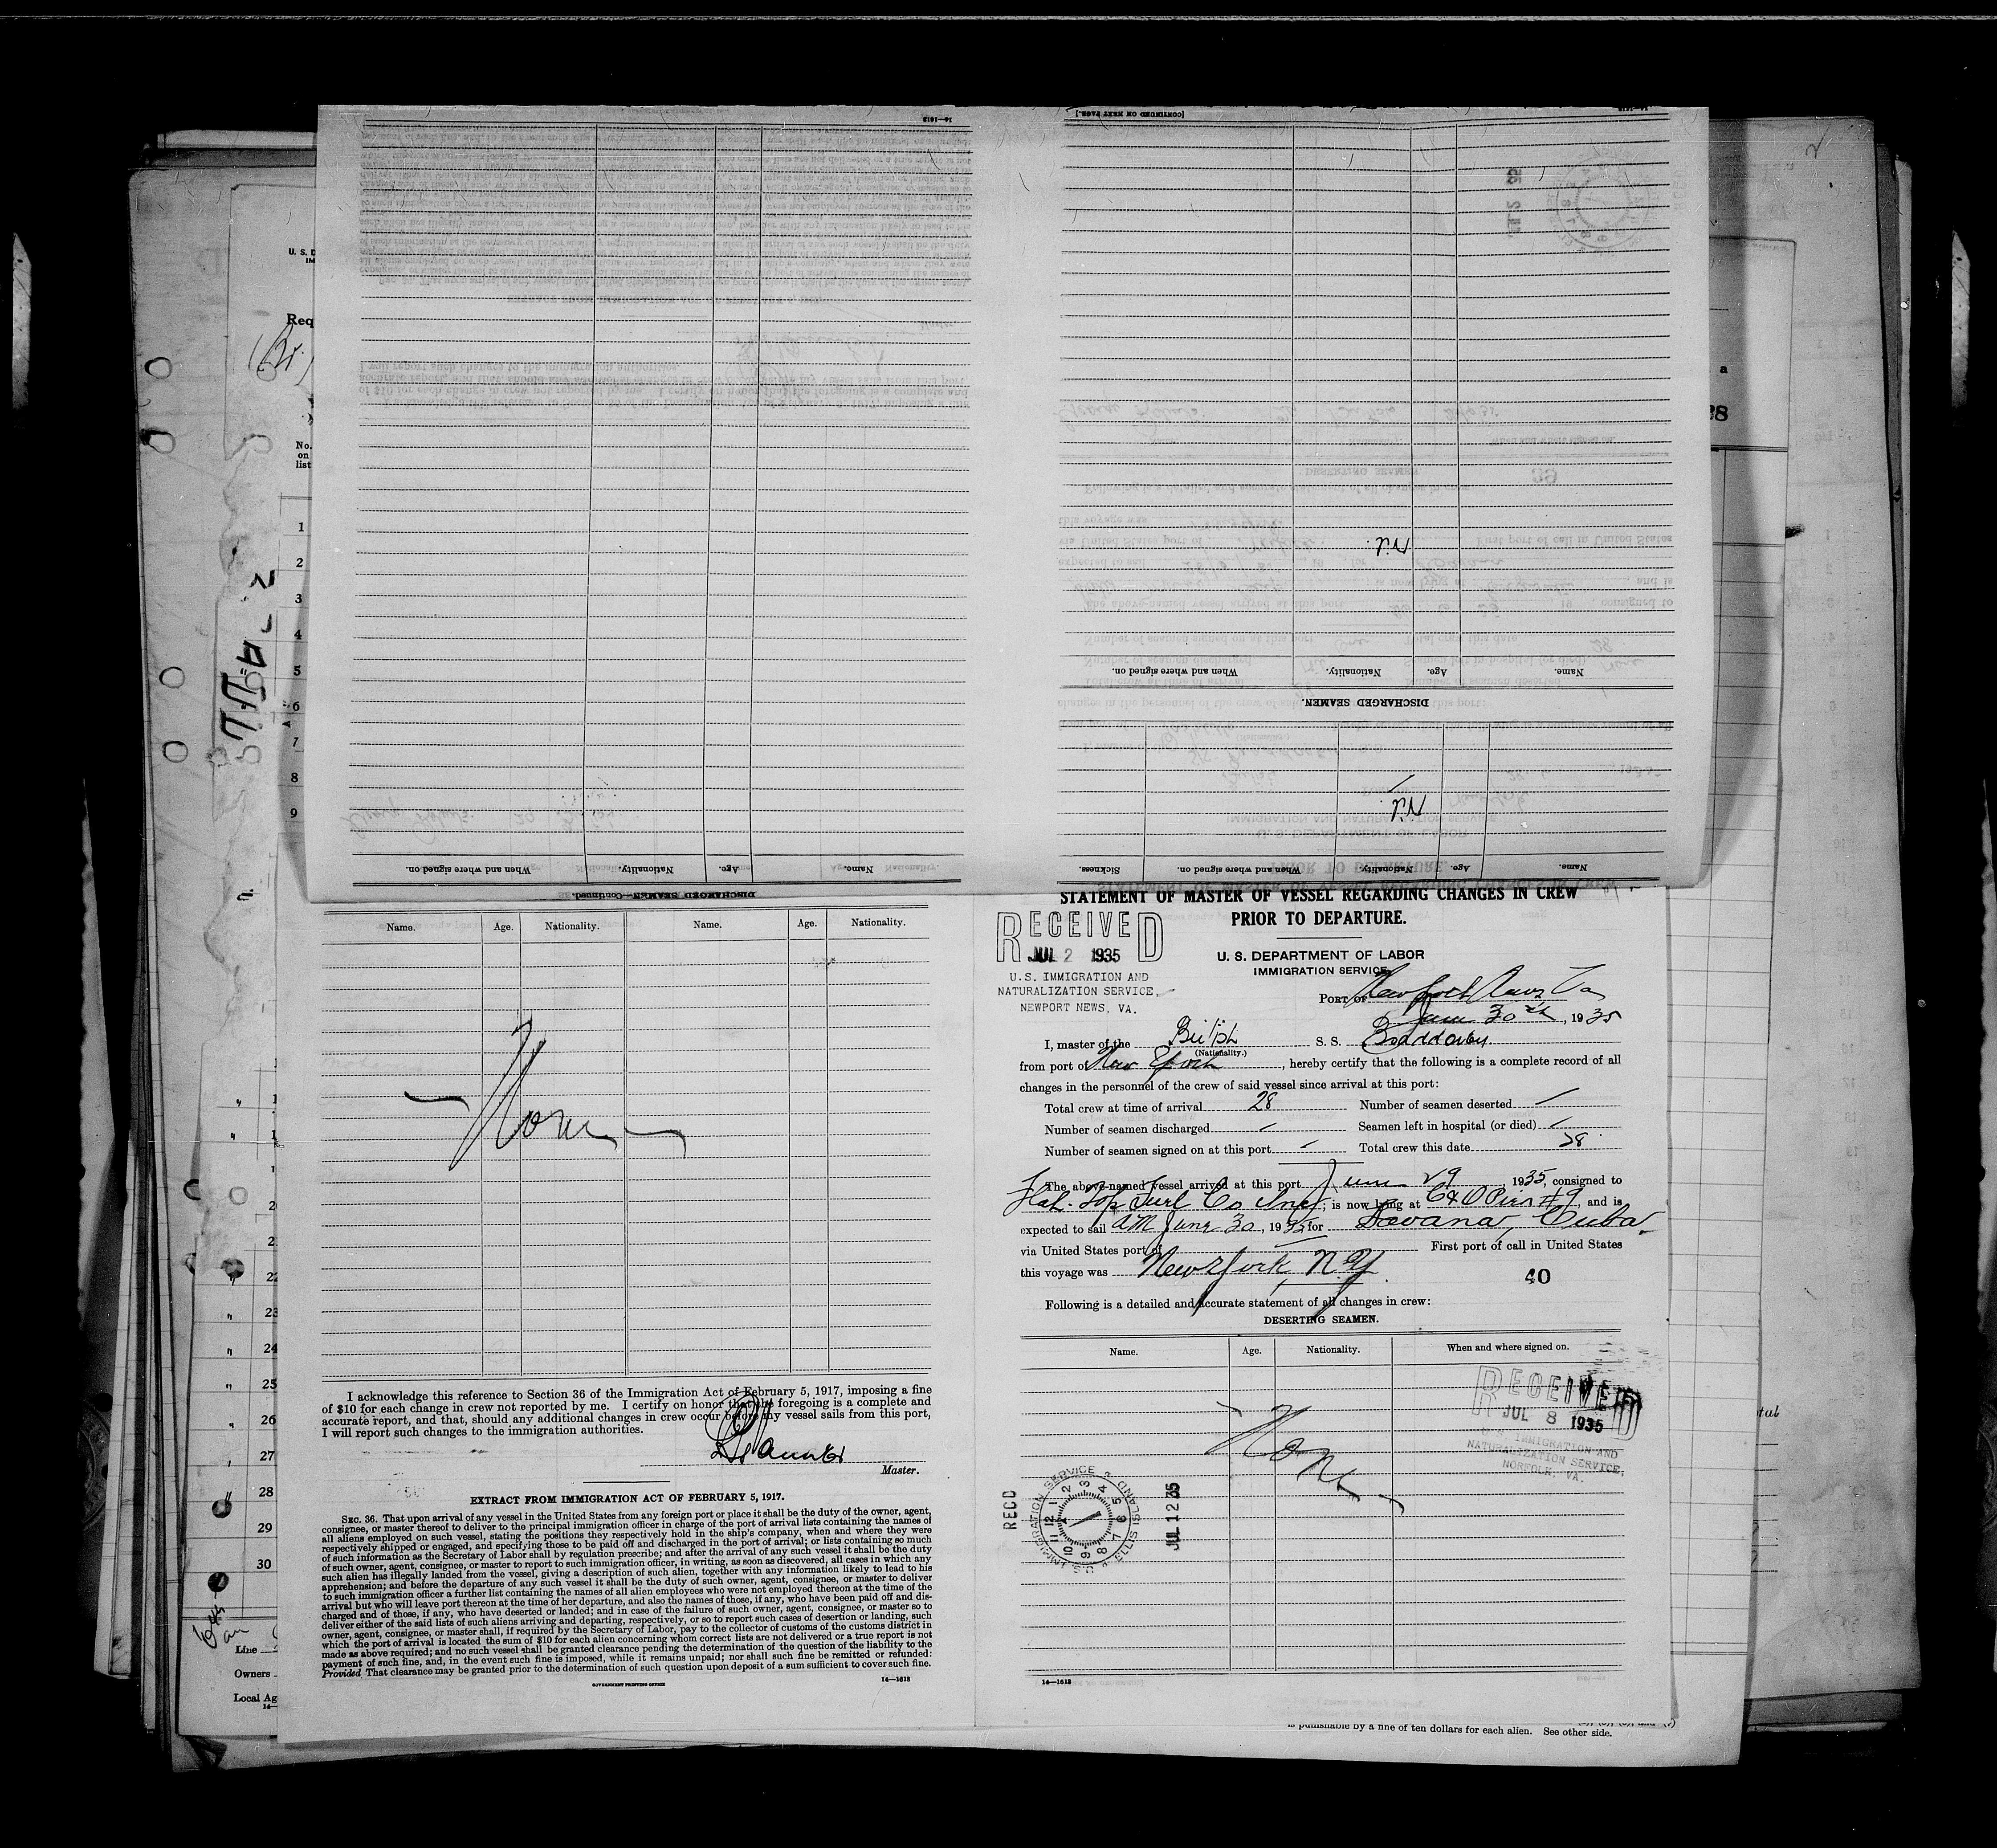 [CONTINUED ON NEXT PAGE.]
14—1613
Nil.
Name.
Age.
Nationality.
When and where signed on.
DISCHARGED SEAMEN.
Nil.
Name.
Age.
Nationality.
When and where signed on.
Sickness.
Name.
Age.
Nationality.
When and where signed on.
DISCHARGED SEAMEN—Continued.
U. S. D
IM
Req
No.
on
list
1
2
3
4
5
6
7
8
9
Name. Age. Nationality. Name. Age. Nationality.
— None —
I acknowledge this reference to Section 36 of the Immigration Act of February 5, 1917, imposing a fine
of $10 for each change in crew not reported by me. I certify on honor that the foregoing is a complete and
accurate report, and that, should any additional changes in crew occur before my vessel sails from this port,
I will report such changes to the immigration authorities.
Master.
EXTRACT FROM IMMIGRATION ACT OF FEBRUARY 5, 1917.
SEC. 36. That upon arrival of any vessel in the United States from any foreign port or place it shall be the duty of the owner, agent,
consignee, or master thereof to deliver to the principal immigration officer in charge of the port of arrival lists containing the names of
all aliens employed on such vessel, stating the positions they respectively hold in the ship's company, when and where they were
respectively shipped or engaged, and specifying those to be paid off and discharged in the port of arrival; or lists containing so much
of such information as the Secretary of Labor shall by regulation prescribe; and after the arrival of any such vessel it shall be the duty
of such owner, agent, consignee, or master to report to such immigration officer, in writing, as soon as discovered, all cases in which any
such alien has illegally landed from the vessel, giving a description of such alien, together with any information likely to lead to his
apprehension; and before the departure of any such vessel it shall be the duty of such owner, agent, consignee, or master to deliver
to such immigration officer a further list containing the names of all alien employees who were not employed thereon at the time of the
arrival but who will leave port thereon at the time of her departure, and also the names of those, if any, who have been paid off and dis-
charged and of those, if any, who have deserted or landed; and in case of the failure of such owner, agent, consignee, or master so to
deliver either of the said lists of such aliens arriving and departing, respectively, or so to report such cases of desertion or landing, such
owner, agent, consignee, or master shall, if required by the Secretary of Labor, pay to the collector of customs of the customs district in
which the port of arrival is located the sum of $10 for each alien concerning whom correct lists are not delivered or a true report is not
made as above required; and no such vessel shall be granted clearance pending the determination of the question of the liability to the
payment of such fine, and, in the event such fine is imposed, while it remains unpaid; nor shall such fine be remitted or refunded:
Provided, That clearance may be granted prior to the determination of such question upon deposit of a sum sufficient to cover such fine.
GOVERNMENT PRINTING OFFICE
14—1613
22
23
24
25
26
27
28
29
30
Line
Owners
Local Ag
STATEMENT OF MASTER OF VESSEL REGARDING CHANGES IN CREW
PRIOR TO DEPARTURE.
RECEIVED
JUL 2 1935
U.S. IMMIGRATION AND
NATURALIZATION SERVICE,
NEWPORT NEWS, VA.
U. S. DEPARTMENT OF LABOR
IMMIGRATION SERVICE
PORT OF Newport News Va
June 30th, 1935
I, master of the British S. S.
(Nationality.)
from port of New York, hereby certify that the following is a complete record of all
changes in the personnel of the crew of said vessel since arrival at this port:
Total crew at time of arrival 28 Number of seamen deserted —
Number of seamen discharged — Seamen left in hospital (or died) —
Number of seamen signed on at this port — Total crew this date 28
The above-named vessel arrived at this port June 29, 1935, consigned to
Flat Top Fuel Co Inc; is now lying at C&O Pier #9, and is
expected to sail AM June 30, 1935 for Havana, Cuba
via United States port of — First port of call in United States
this voyage was New York, N.Y
40
Following is a detailed and accurate statement of all changes in crew:
DESERTING SEAMEN.
Name. Age. Nationality. When and where signed on.
— None —
RECEIVED
JUL 8 1935
U.S. IMMIGRATION AND
NATURALIZATION SERVICE,
NORFOLK, VA.
RECD
U.S. IMMIGRATION SERVICE ELLIS ISLAND
JUL 12 35
14—1613
is punishable by a fine of ten dollars for each alien. See other side.